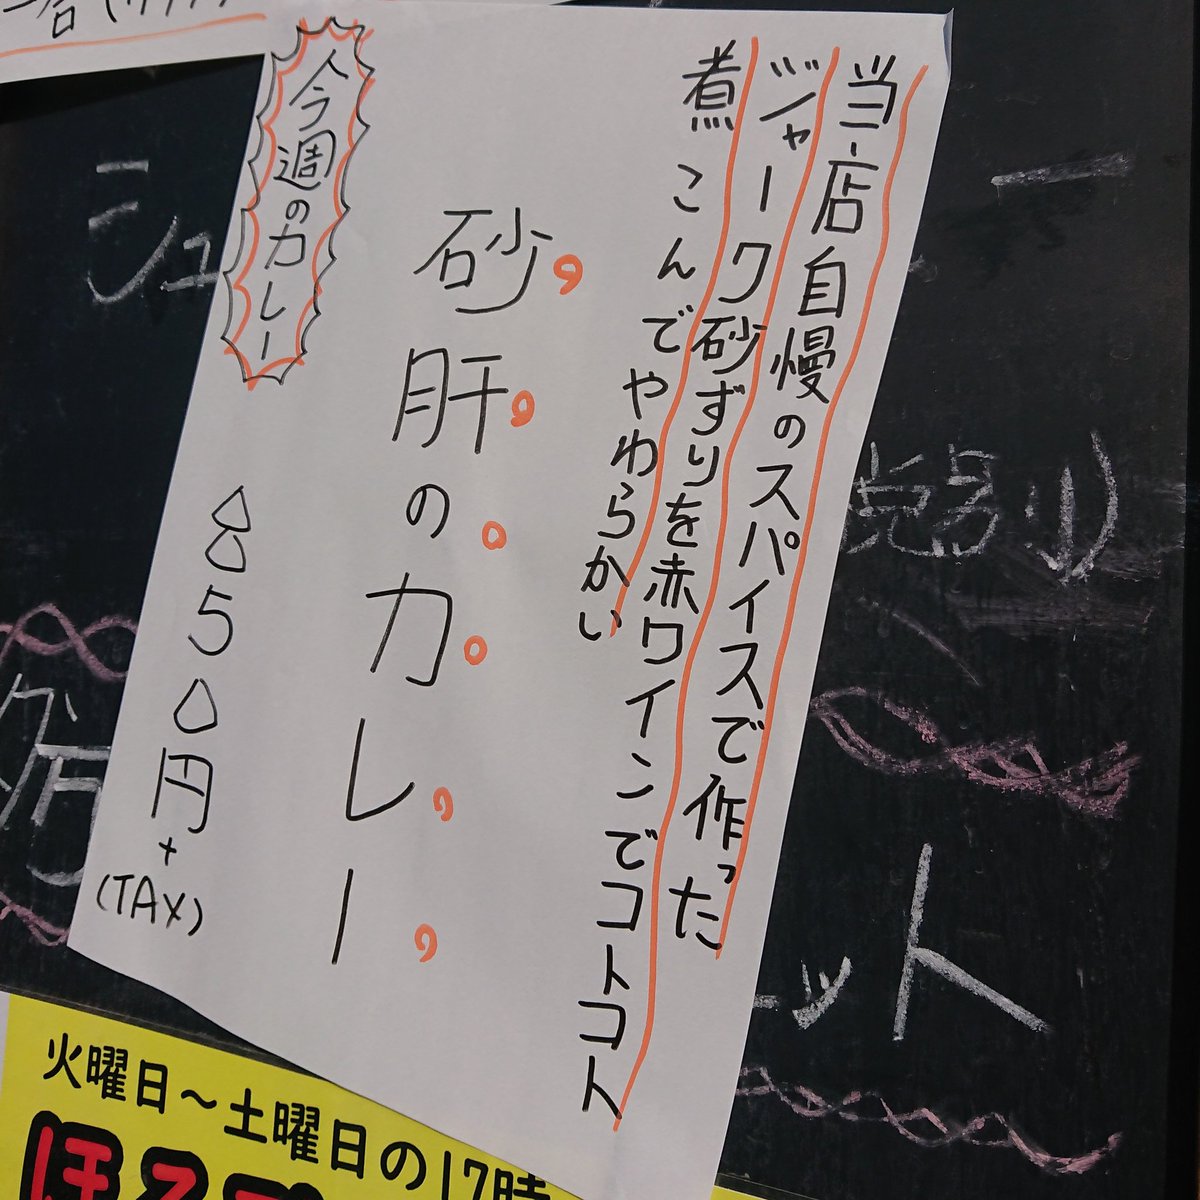 当店自慢のスパイスで作った
ジャーク砂ずりを赤ワインでコトコト
煮こんでやわらかい
砂肝のカレー
今週のカレー
850円+
(TAX)
火曜日〜土曜日の17時